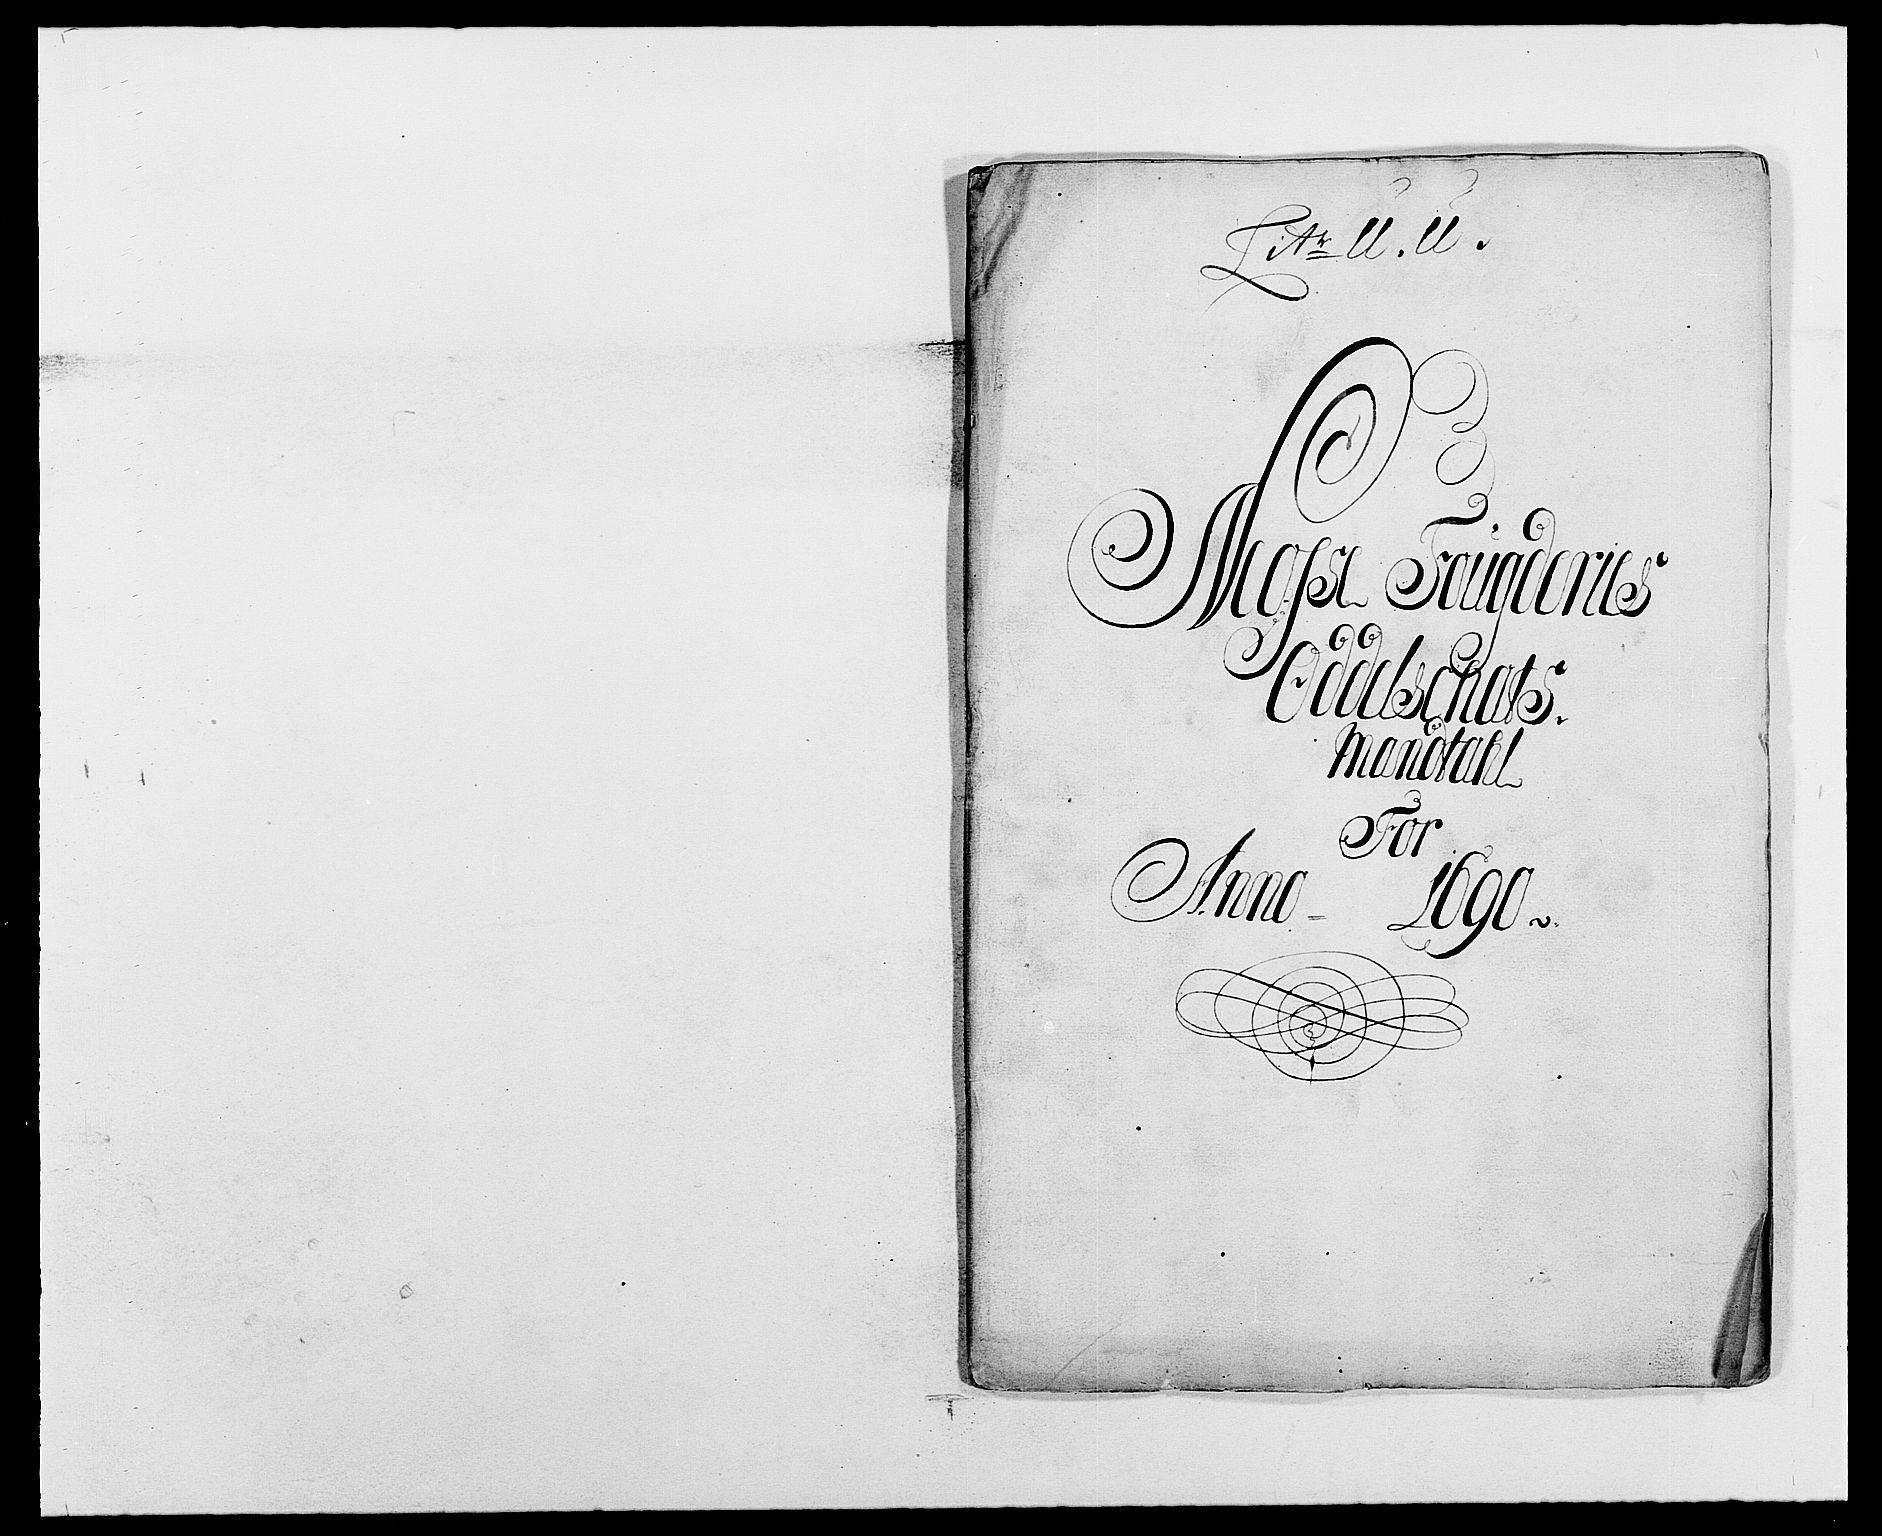 Litr Ü. Ü.
Mosse Foügderies
Oddelschats.
Mandtahl
For
Anno - 1690